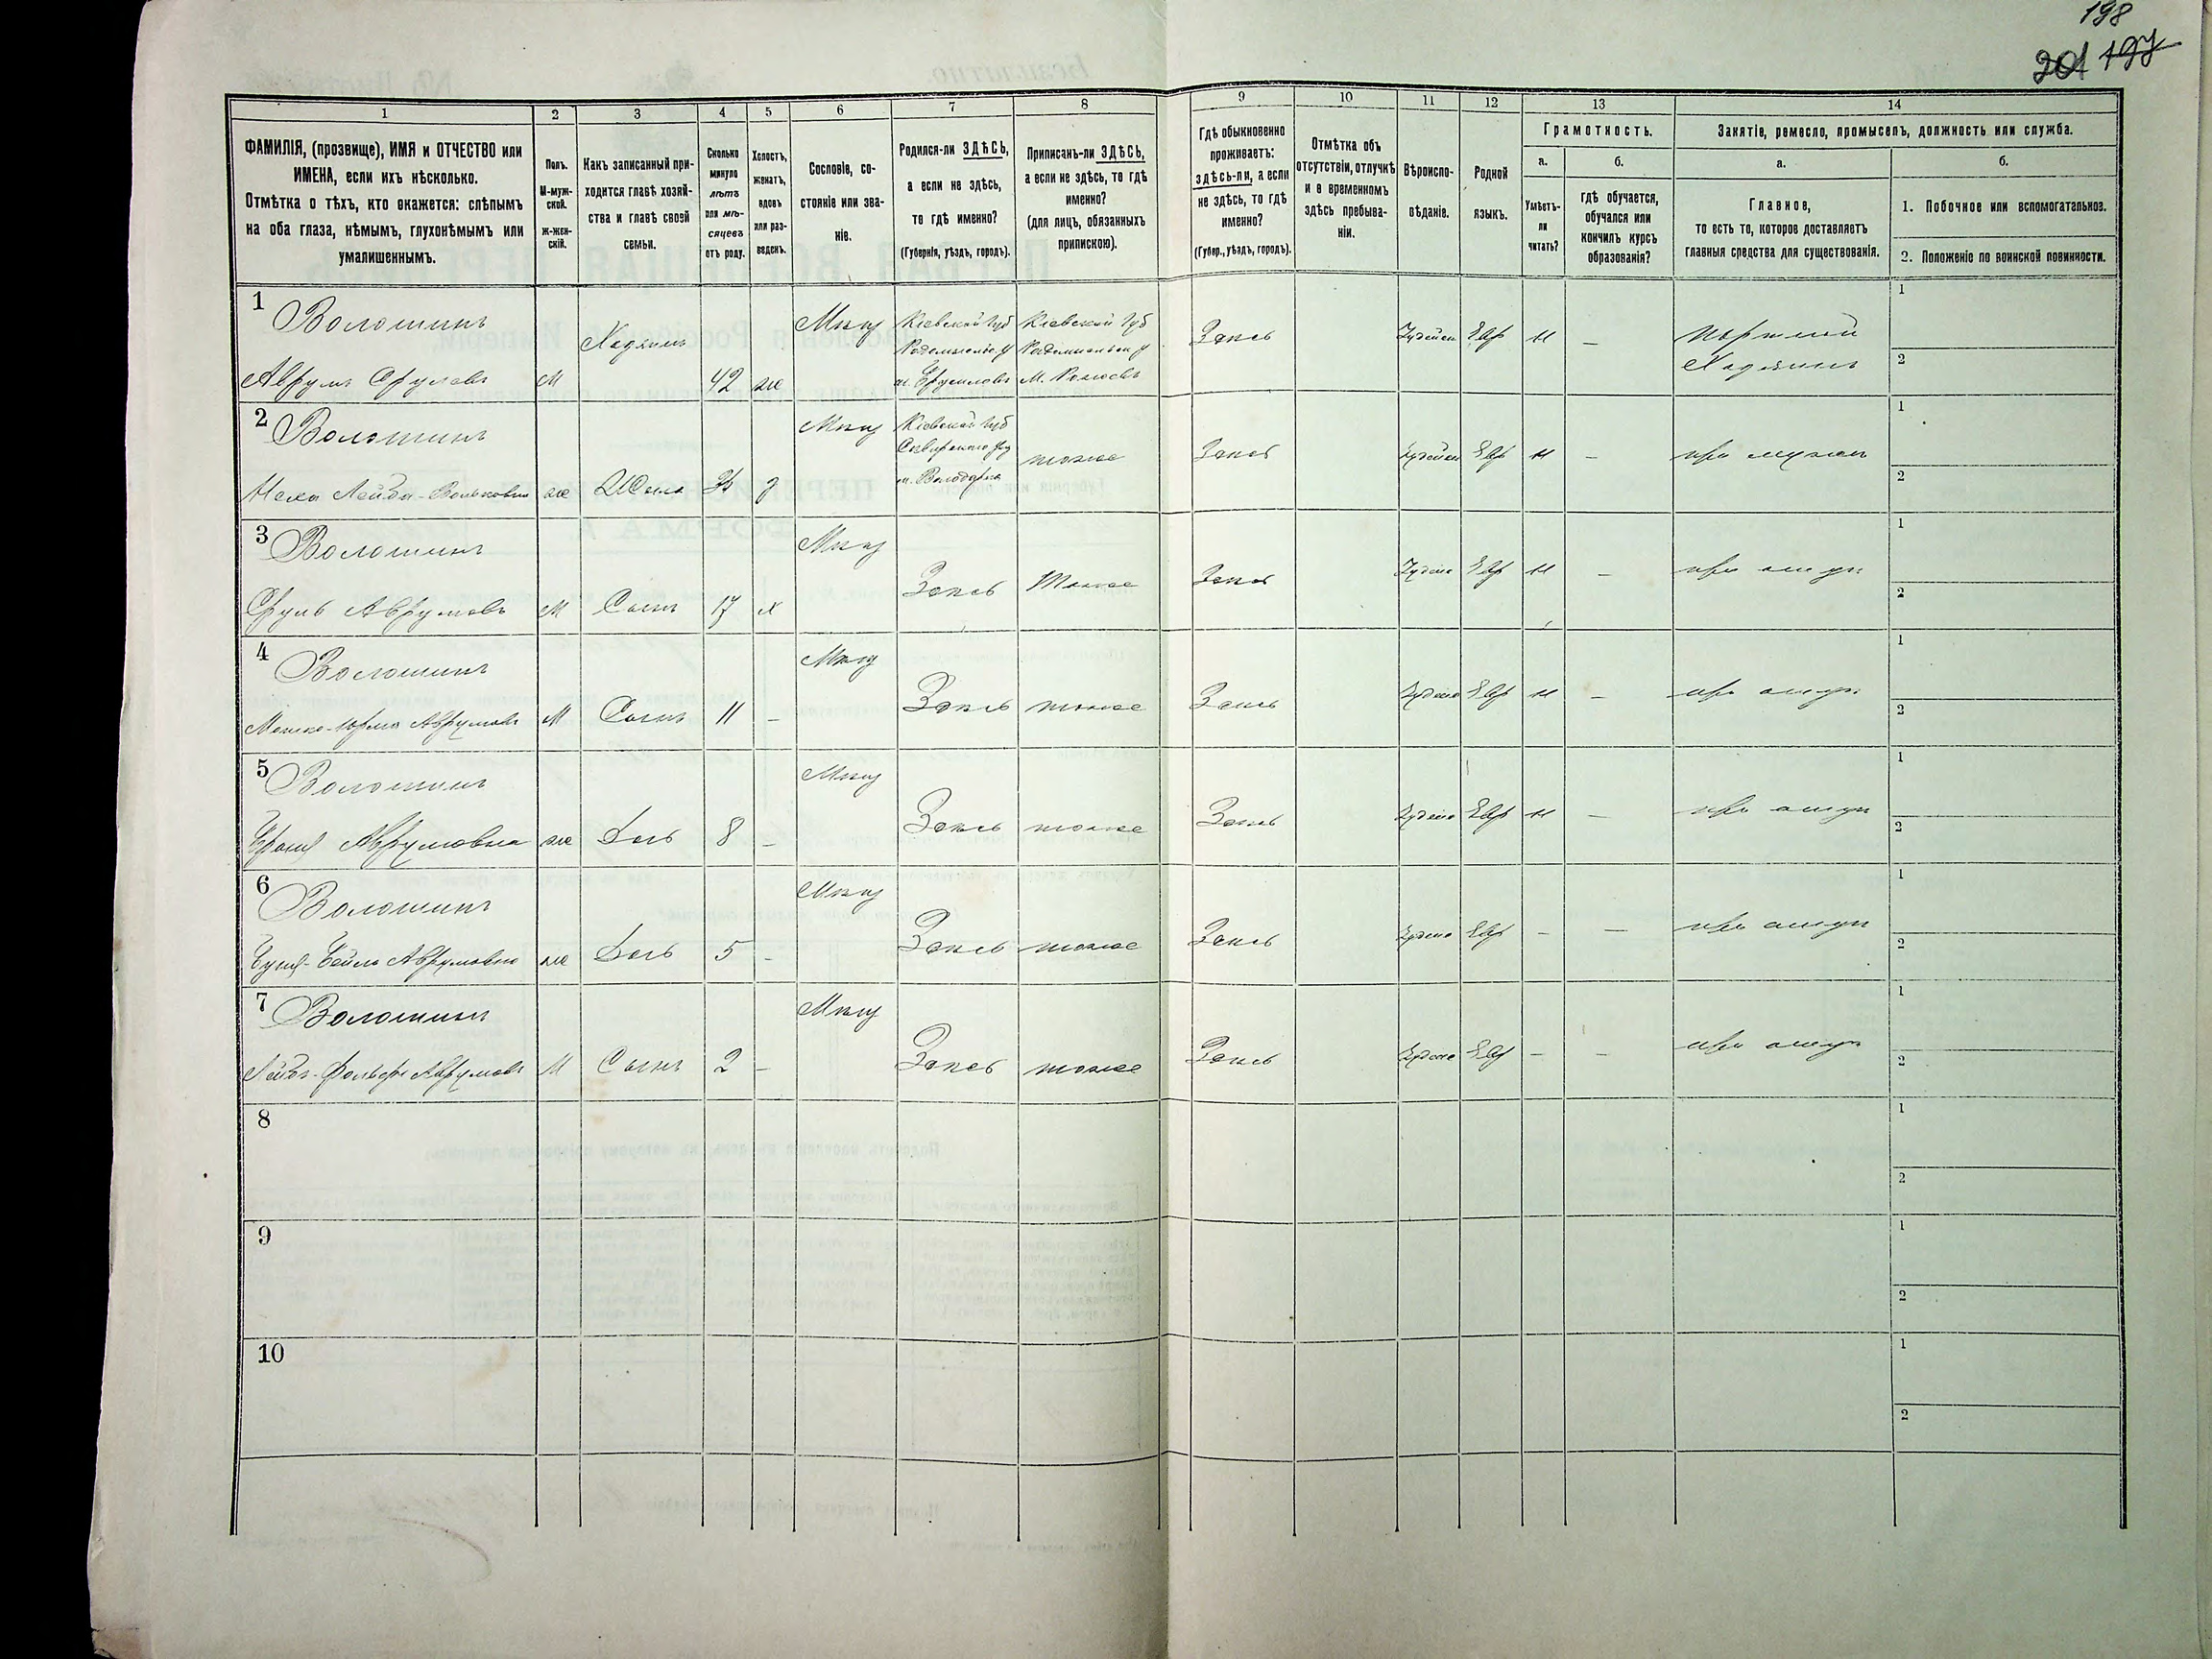 198
201 197
1
2
3
4
5
6
7
8
9
10
11
12
13
14
ФАМИЛІЯ, (прозвище), ИМЯ и ОТЧЕСТВО или
ИМЕНА, если ихъ нѣсколько.
Отмѣтка о тѣхъ, кто окажется: слѣпымъ
на оба глаза, нѣмымъ, глухонѣмымъ или
умалишеннымъ.
Полъ.
М-муж-
ской.
ж-жен-
скій.
Какъ записанный при-
ходится главѣ хозяй-
ства и главѣ своей
семьи.
Сколько
минуло
лѣтъ
или мѣ-
сяцевъ
отъ роду.
Холостъ,
женатъ,
вдовъ
или раз-
веденъ.
Сословіе, со-
стояніе или зва-
ніе.
Родился-ли ЗДѢСЬ,
а если не здѣсь,
то гдѣ именно?
(Губернія, уѣздъ, городъ).
Приписанъ-ли ЗДѢСЬ,
а если не здѣсь, то гдѣ
именно?
(для лицъ, обязанныхъ
припискою).
Гдѣ обыкновенно
проживаетъ:
здѣсь-ли, а если
не здѣсь, то гдѣ
именно?
(Губер., уѣздъ, городъ).
Отмѣтка объ
отсутствіи, отлучкѣ
и о временномъ
здѣсь пребыва-
ніи.
Вѣроиспо-
вѣданіе.
Родной
языкъ.
Грамотность.
а.
б.
Умѣетъ-
ли
читать?
гдѣ обучается,
обучался или
кончилъ курсъ
образованія?
Занятіе, ремесло, промыселъ, должность или служба.
а.
б.
Главное,
то есть то, которое доставляетъ
главныя средства для существованія.
1. Побочное или вспомогательное.
2. Положеніе по воинской повинности.
1
Волошинъ
Аврумъ Срулевъ
М
Хозяинъ
42
ж
Мѣщ
Кіевской Губ
Кіевской Губ
Здѣсь
Іудейск
Евр
н
—
Портной
Хозяинъ
1
2
2
Волошинъ
ж
Жена
Мѣщ
Кіевской Губ
м. Володарка
тоже
Здѣсь
Іудейск
Евр
н
—
при мужѣ
1
2
3
Волошинъ
Сруль Аврумовъ
М
Сынъ
17
х
Мѣщ
Здѣсь
Тоже
Здѣсь
Евр
н
—
при отцѣ
1
2
4
Волошинъ
М
Сынъ
11
—
Мѣщ
Здѣсь
тоже
Здѣсь
Евр
н
—
при отцѣ
1
2
5
Волошинъ
Аврумовна
ж
Дочь
8
—
Мѣщ
Здѣсь
тоже
Здѣсь
Евр
н
—
при отцѣ
1
2
6
Волошинъ
Аврумовна
ж
Дочь
5
—
Мѣщ
Здѣсь
тоже
Здѣсь
Евр
—
—
при отцѣ
1
2
7
Волошинъ
Аврумовъ
М
Сынъ
2
—
Мѣщ
Здѣсь
тоже
Здѣсь
Евр
—
—
при отцѣ
1
2
8
1
2
9
1
2
10
1
2